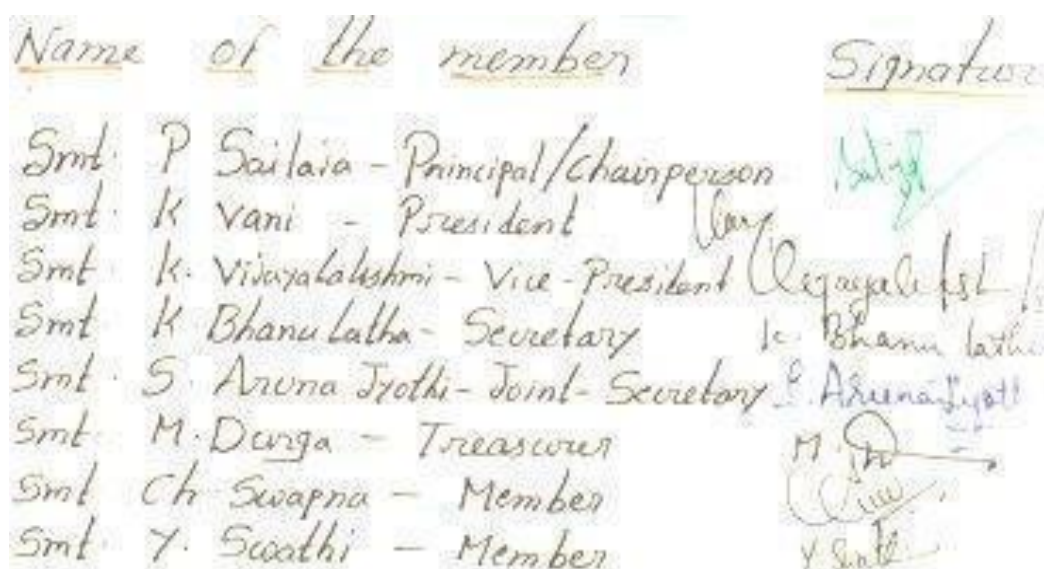 Name of the member Signatur
Smt. P Sailaja - Principal/Chairperson
Smt. K Vani - President Vany
Smt. K. Vijayalakshmi - Vice-President
Smt K Bhanu Latha - Secretary K. Bhanu lath
Smt. S. Aruna Jyothi - Joint - Secretary S. Aruna Jyoti
Smt. M. Durga - Treasurer M.
Smt Ch Swapna - Member
Smt. Y. Swathi - Member Y Swath